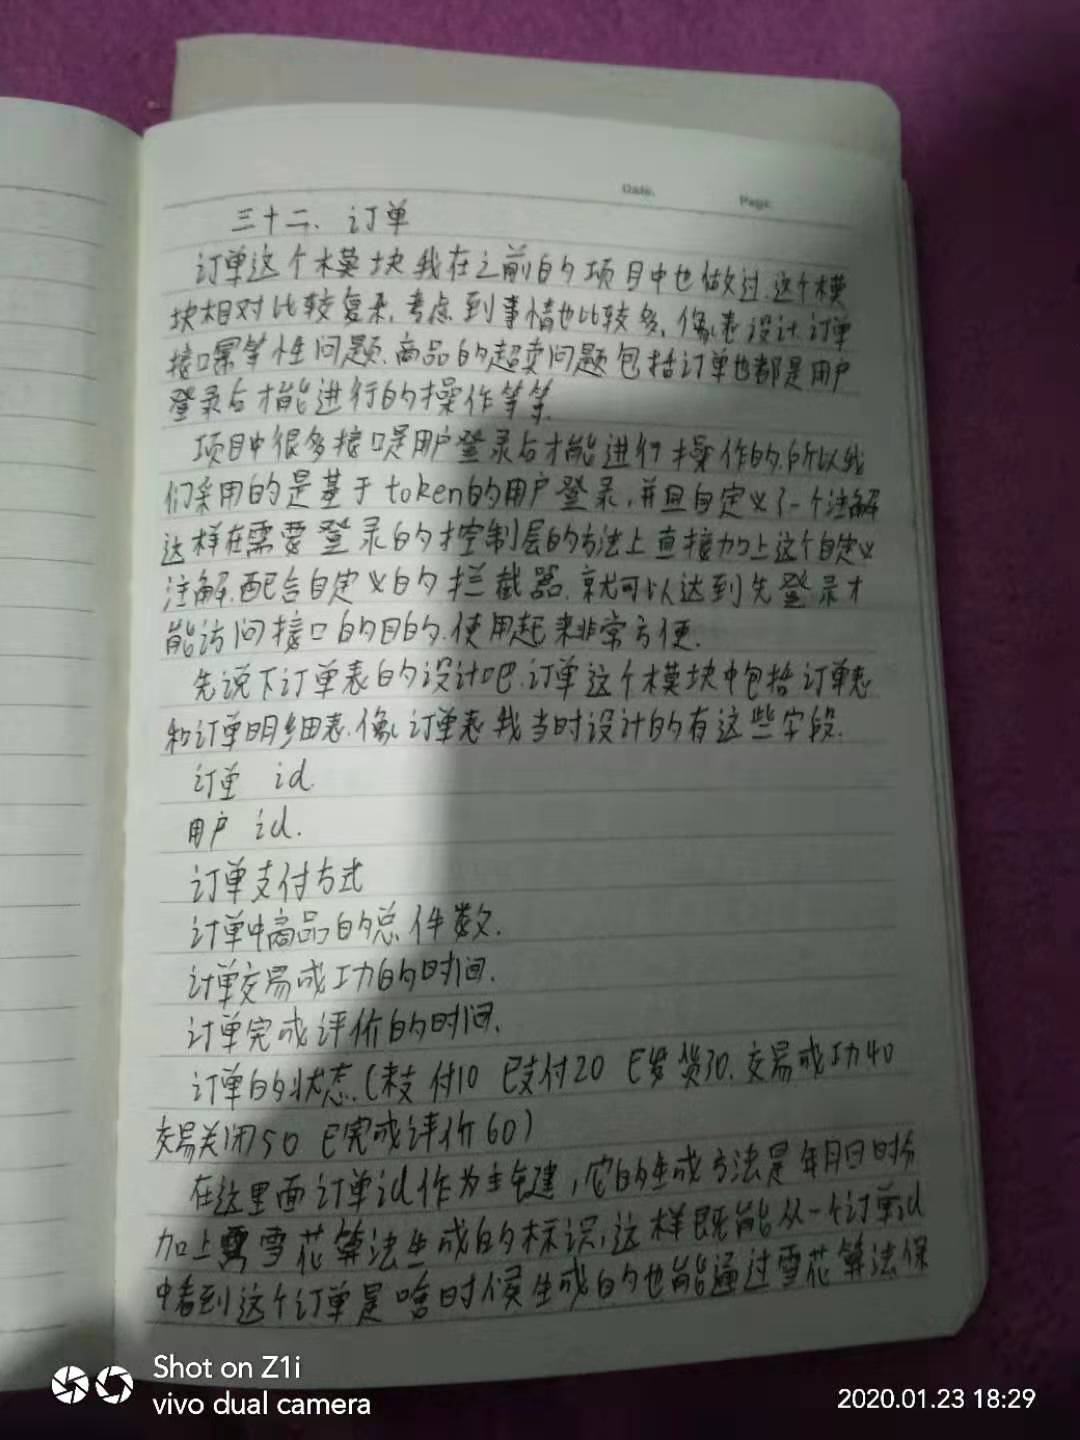 Date.
Page.
三十二、订单
订单这个模块我在之前的项目中也做过.这个模
块相对比较复杂.考虑到事情也比较多.像表设计.订单
接口幂等性问题.商品的超卖问题包括订单也都是用户
登录后才能进行的操作等等.
项目中很多接口是用户登录后才能进行操作的.所以我
们采用的是基于token的用户登录.并且自定义了一个注解
这样在需要登录的控制层的方法上直接加上这个自定义
注解.配合自定义的拦截器.就可以达到先登录才
能访问接口的目的.使用起来非常方便.
先说下订单表的设计吧.订单这个模块中包括订单表
和订单明细表.像订单表我当时设计的有这些字段.
订单 id.
用户 id.
订单支付方式
订单中商品的总件数.
订单交易成功的时间.
订单完成评价的时间.
订单的状态.(未支付10 已支付20 已发货30.交易成功40
交易关闭50 已完成评价60)
在这里面订单id作为主键,它的生成方法是年月日时分
加上雪花算法生成的标识,这样既能从一个订单id
中看到这个订单是啥时候生成的也能通过雪花算法保
Shot on Z1i
vivo dual camera
2020.01.23 18:29